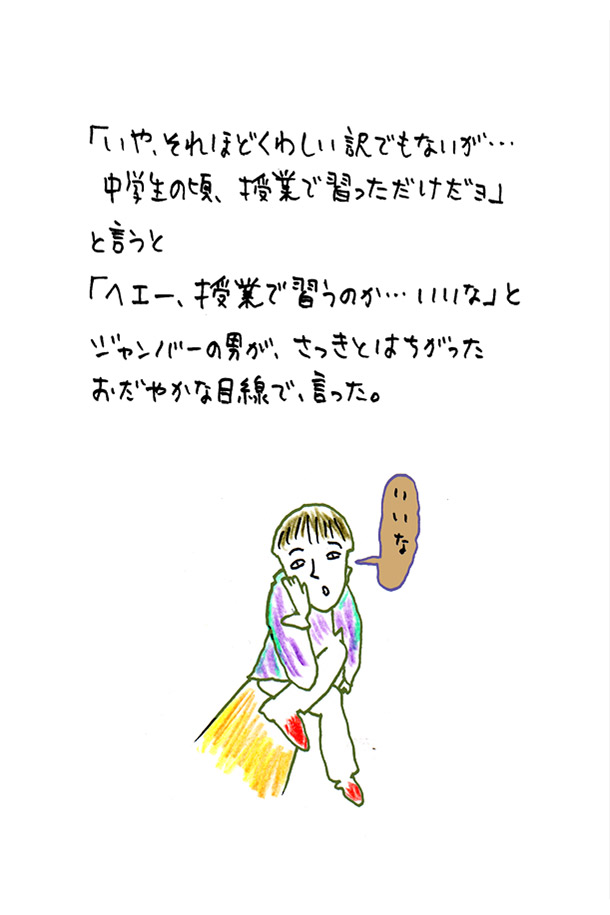 「いや、それほどくわしい訳でもないが…
中学生の頃、授業で習っただけだヨ」
と言うと
「ヘエー、授業で習うのか…いいな」と
ジャンバーの男が、さっきとはちがった
おだやかな目線で、言った。
いいな